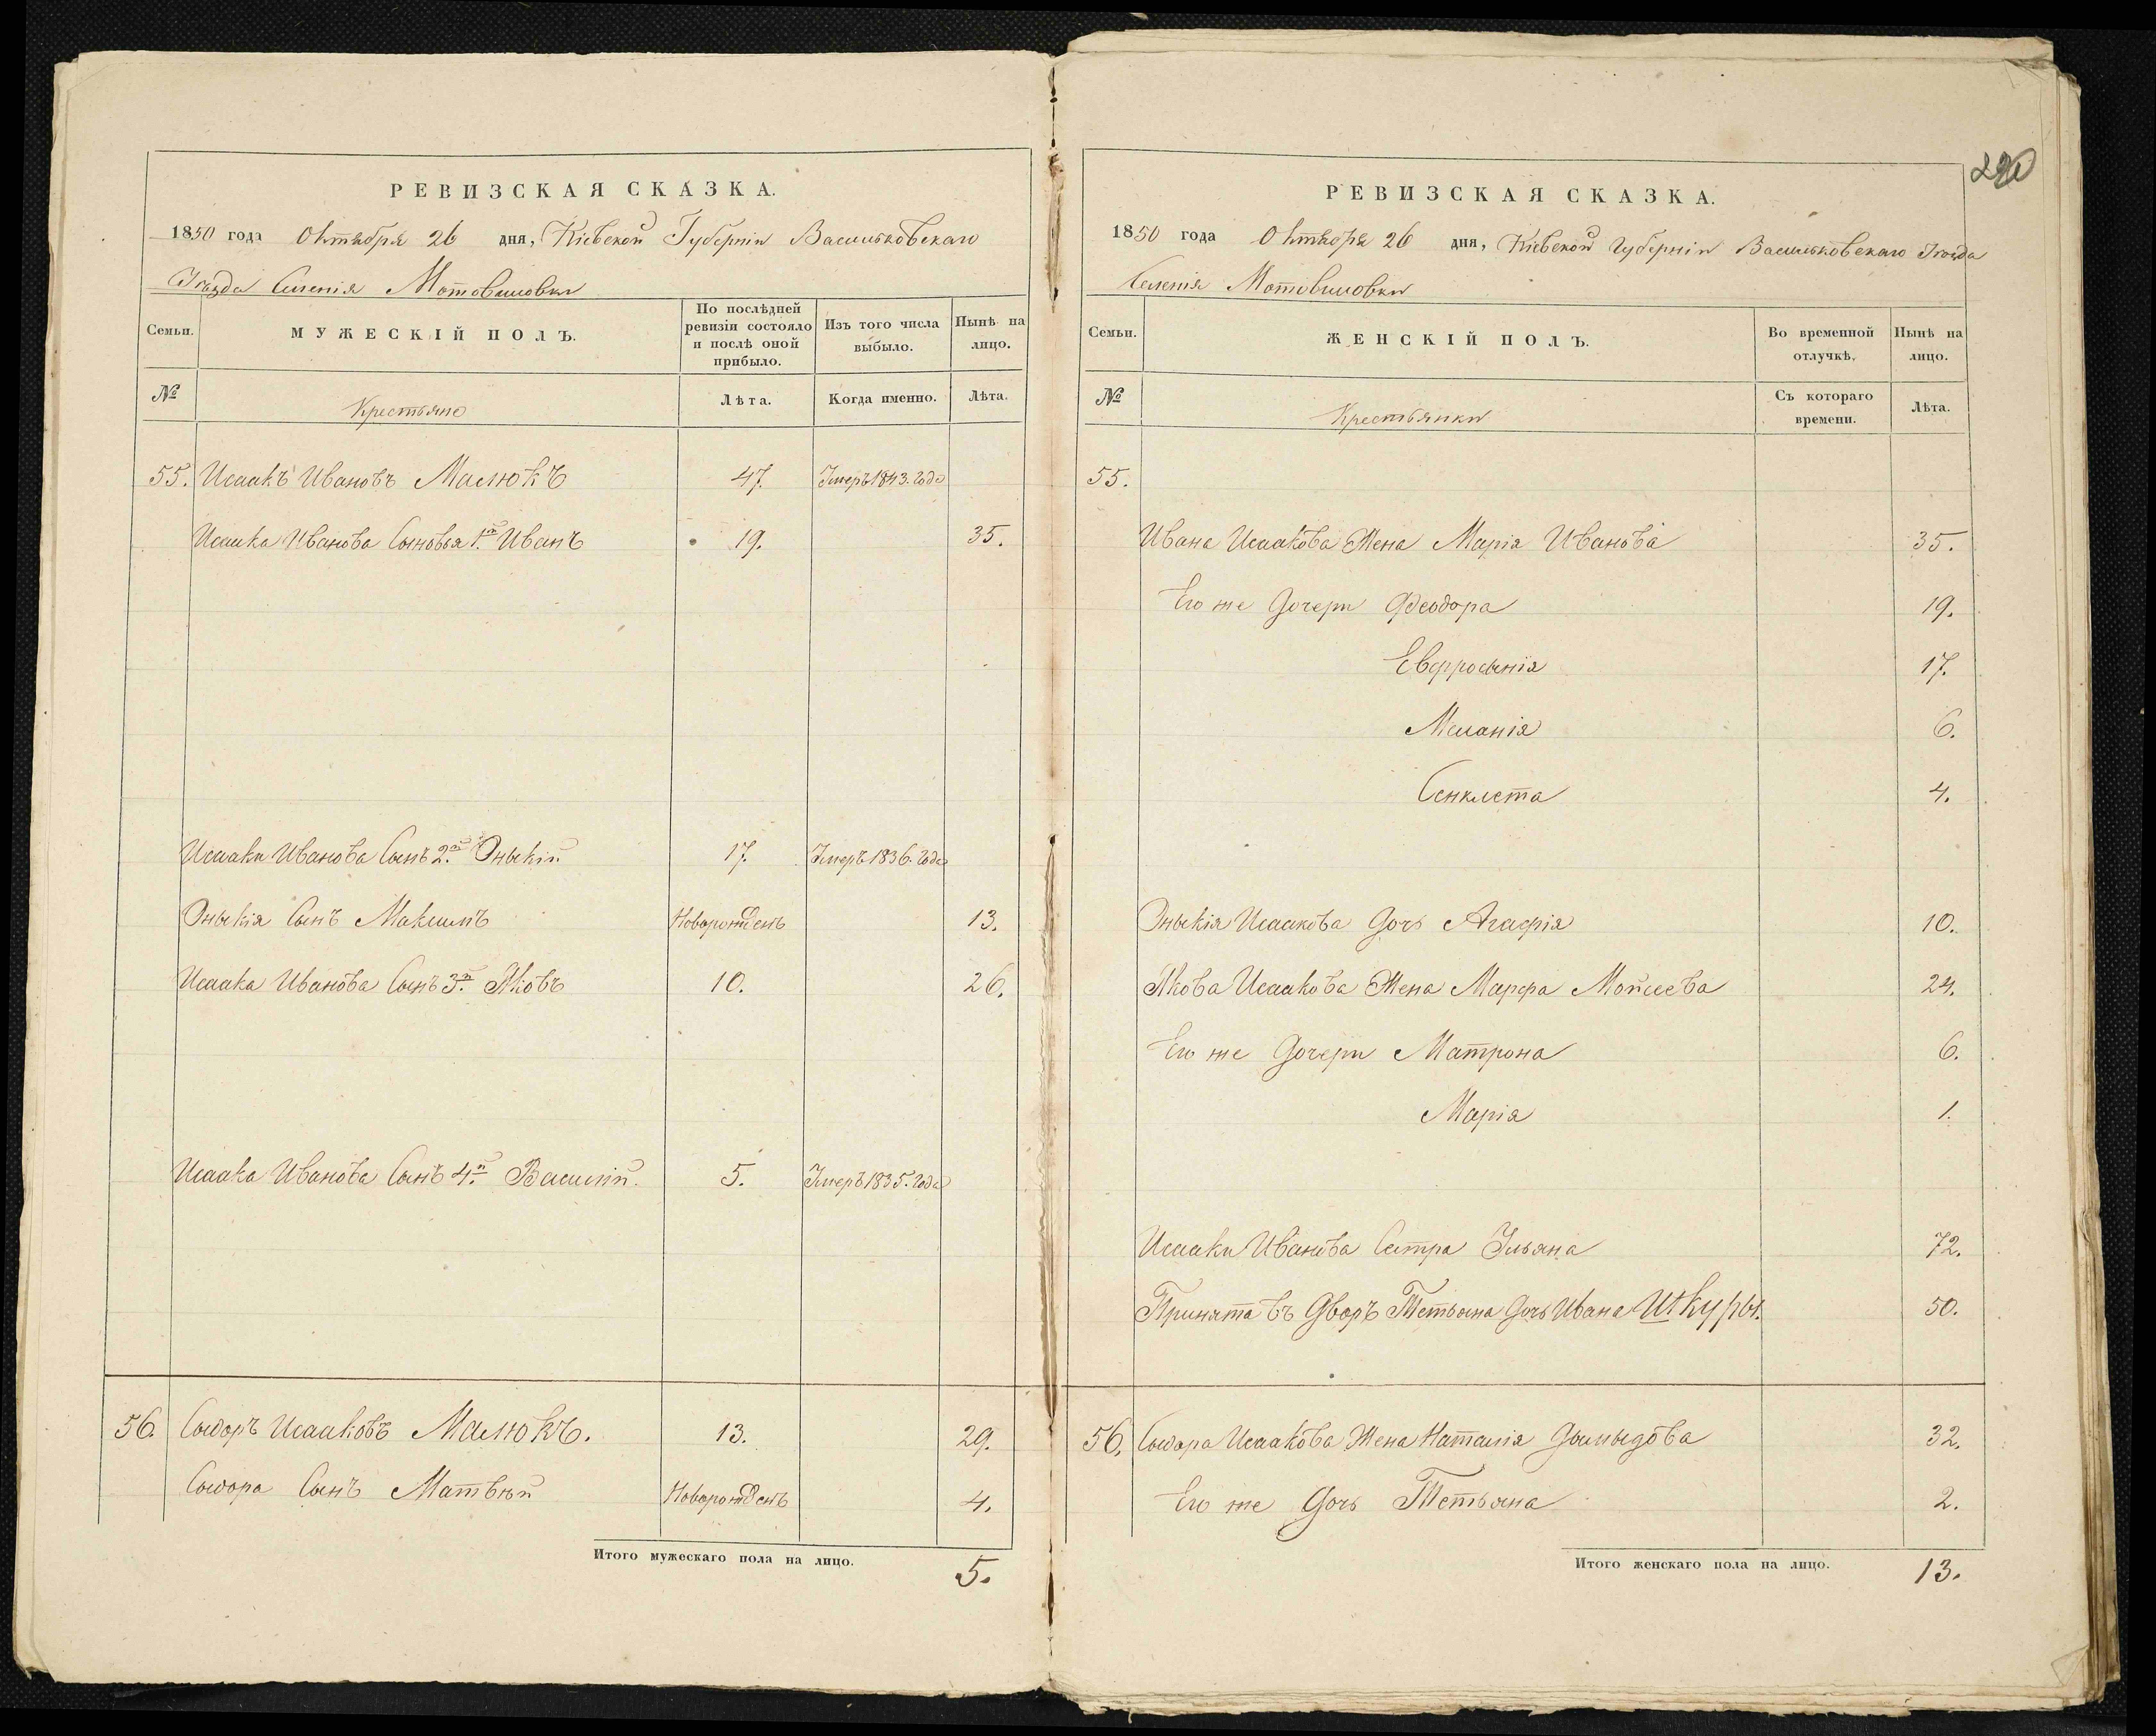 РЕВИЗСКАЯ СКАЗКА.
1850 года Октября 26 дня, Кіевской Губерніи Васильковскаго
Уѣзда Селенія Мотовиловки
Семьи.
МУЖЕСКІЙ ПОЛЪ.
По послѣдней ревизіи состояло и послѣ оной прибыло.
Изъ того числа выбыло.
Нынѣ на лицо.
№
Крестьяне
Лѣта.
Когда именно.
Лѣта.
55. Исаакъ Ивановъ Малюкъ 47. Умеръ 1843. года
Исаака Иванова Сыновья 1й Иванъ 19. 35.
Исаака Иванова Сынъ 2й 17. Умеръ 1836. года
Сынъ Максимъ Новорожденъ 13.
Исаака Иванова Сынъ 3й Яковъ 10. 26.
Исаака Иванова Сынъ 4й Василій. 5. Умеръ 1835. года
56. Сыдоръ Исааковъ Малюкъ. 13. 29.
Сыдора Сынъ Матвѣй Новорожденъ 4.
Итого мужескаго пола на лицо. 5.
РЕВИЗСКАЯ СКАЗКА.
1850 года Октября 26 дня, Кіевской Губерніи Васильковскаго Уѣзда
Селенія Мотовиловки
Семьи.
ЖЕНСКІЙ ПОЛЪ.
Во временной отлучкѣ.
Нынѣ на лицо.
№
Крестьянки
Съ котораго времени.
Лѣта.
55.
Ивана Исаакова Жена Марія Иванова 35.
Его же Дочери Феодора 19.
Евфросынія 17.
Меланія 6.
Сенклета 4.
Исаакова Дочь Агафія 10.
Якова Исаакова Жена Марфа Мойсеева 24.
Его же Дочери Матрона 6.
Марія 1.
Исаака Иванова Сестра Ульяна 72.
Принята въ Дворъ Тетьяна Дочь Ивана Шкуры. 50.
56. Сыдора Исаакова Жена Наталія 32.
Его же Дочь Тетьяна 2.
Итого женскаго пола на лицо. 13.